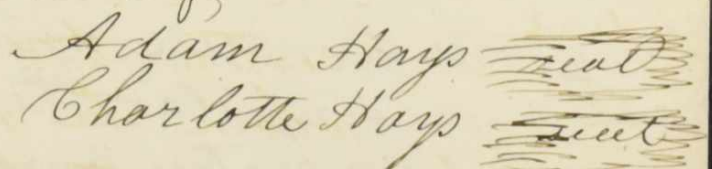 Adam Hays seal
Charlotte Hays seal